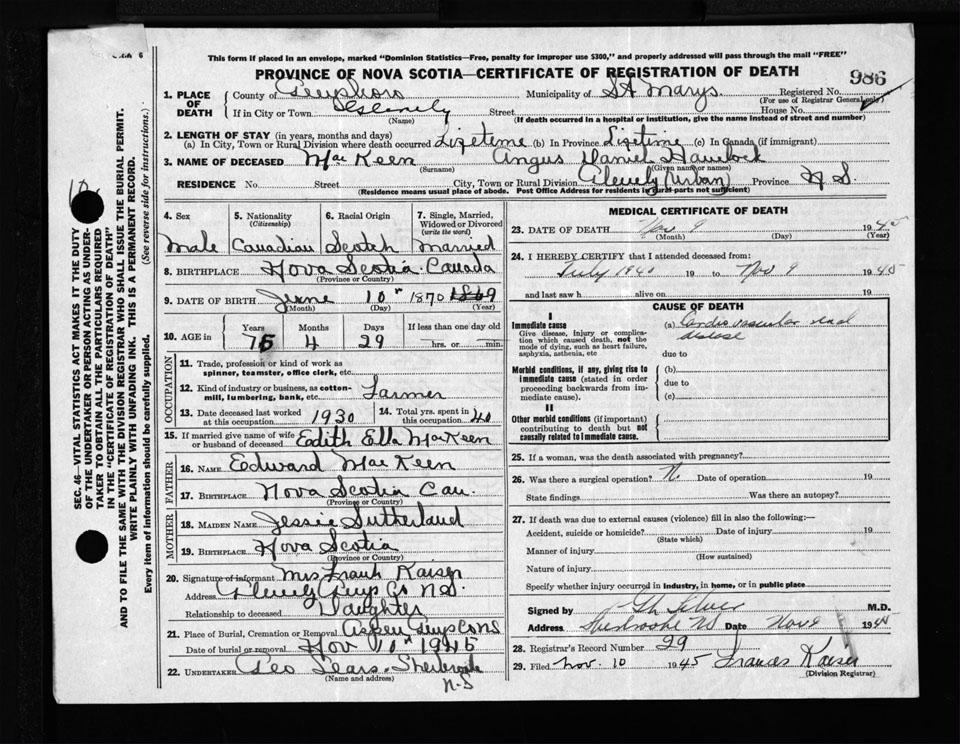 This form if placed in an envelope, marked "Dominion Statistics—Free, penalty for improper use $300," and properly addressed will pass through the mail "FREE"
PROVINCE OF NOVA SCOTIA—CERTIFICATE OF REGISTRATION OF DEATH
986
1. PLACE OF DEATH County of Municipality of St Marys Registered No.
(For use of Registrar General only)
If in City or Town Street House No.
(Name) (If death occurred in a hospital or institution, give the name instead of street and number)
2. LENGTH OF STAY (in years, months and days)
(a) In City, Town or Rural Division where death occurred Lifetime (b) In Province Lifetime (c) In Canada (if immigrant)
3. NAME OF DECEASED MacKeen Angus Daniel Havelock
(Surname) (Given name or names)
RESIDENCE No. Street City, Town or Rural Division (Urban) Province N S.
(Residence means usual place of abode. Post Office Address for residents in rural parts not sufficient)
4. Sex Male
5. Nationality (Citizenship) Canadian
6. Racial Origin Scotch
7. Single, Married, Widowed or Divorced (write the word) Married
8. BIRTHPLACE Nova Scotia. Canada
(Province or Country)
9. DATE OF BIRTH June 10" 1870 1869
(Month) (Day) (Year)
10. AGE in Years 75 Months 4 Days 29 If less than one day old hrs. or min.
OCCUPATION
11. Trade, profession or kind of work as spinner, teamster, office clerk, etc.
12. Kind of industry or business, as cotton-mill, lumbering, bank, etc. Farmer
13. Date deceased last worked at this occupation 1930
14. Total yrs. spent in this occupation 40
15. If married give name of wife or husband of deceased Edith Ella MacKeen
FATHER
16. NAME Edward MacKeen
17. BIRTHPLACE Nova Scotia Can.
(Province or Country)
MOTHER
18. MAIDEN NAME Jessie Sutherland
19. BIRTHPLACE Nova Scotia
(Province or Country)
20. Signature of informant Mrs Frank Kaiser
Address Guys Co N S.
Relationship to deceased Daughter
21. Place of Burial, Cremation or Removal Aspen Guys Co N S
Date of burial or removal Nov 10" 1945
22. UNDERTAKER Geo Sears - Sherbrooke
(Name and address) N.S
MEDICAL CERTIFICATE OF DEATH
23. DATE OF DEATH Nov 9 1945
(Month) (Day) (Year)
24. I HEREBY CERTIFY that I attended deceased from:
July 1940 19 to Nov 9 1945
and last saw h alive on 19
CAUSE OF DEATH
I
Immediate cause
Give disease, injury or complication which caused death, not the mode of dying, such as heart failure, asphyxia, asthenia, etc
(a) Cardio vascular renal disease
due to
Morbid conditions, if any, giving rise to immediate cause (stated in order proceeding backwards from immediate cause).
(b)
due to
(c)
II
Other morbid conditions (if important) contributing to death but not causally related to immediate cause.
25. If a woman, was the death associated with pregnancy?
26. Was there a surgical operation? N. Date of operation 19
State findings Was there an autopsy?
27. If death was due to external causes (violence) fill in also the following:—
Accident, suicide or homicide? Date of injury 19
(State which)
Manner of injury
(How sustained)
Nature of injury
Specify whether injury occurred in industry, in home, or in public place
Signed by M.D.
Address Sherbrooke NS Date Nov 9 1945
28. Registrar's Record Number 29
29. Filed Nov. 10 1945 Frances Kaiser
(Division Registrar)
SEC. 46—VITAL STATISTICS ACT MAKES IT THE DUTY OF THE UNDERTAKER OR PERSON ACTING AS UNDERTAKER TO OBTAIN ALL THE PARTICULARS REQUIRED IN THE "CERTIFICATE OF REGISTRATION OF DEATH" AND TO FILE THE SAME WITH THE DIVISION REGISTRAR WHO SHALL ISSUE THE BURIAL PERMIT.
WRITE PLAINLY WITH UNFADING INK. THIS IS A PERMANENT RECORD.
Every item of information should be carefully supplied. (See reverse side for instructions.)